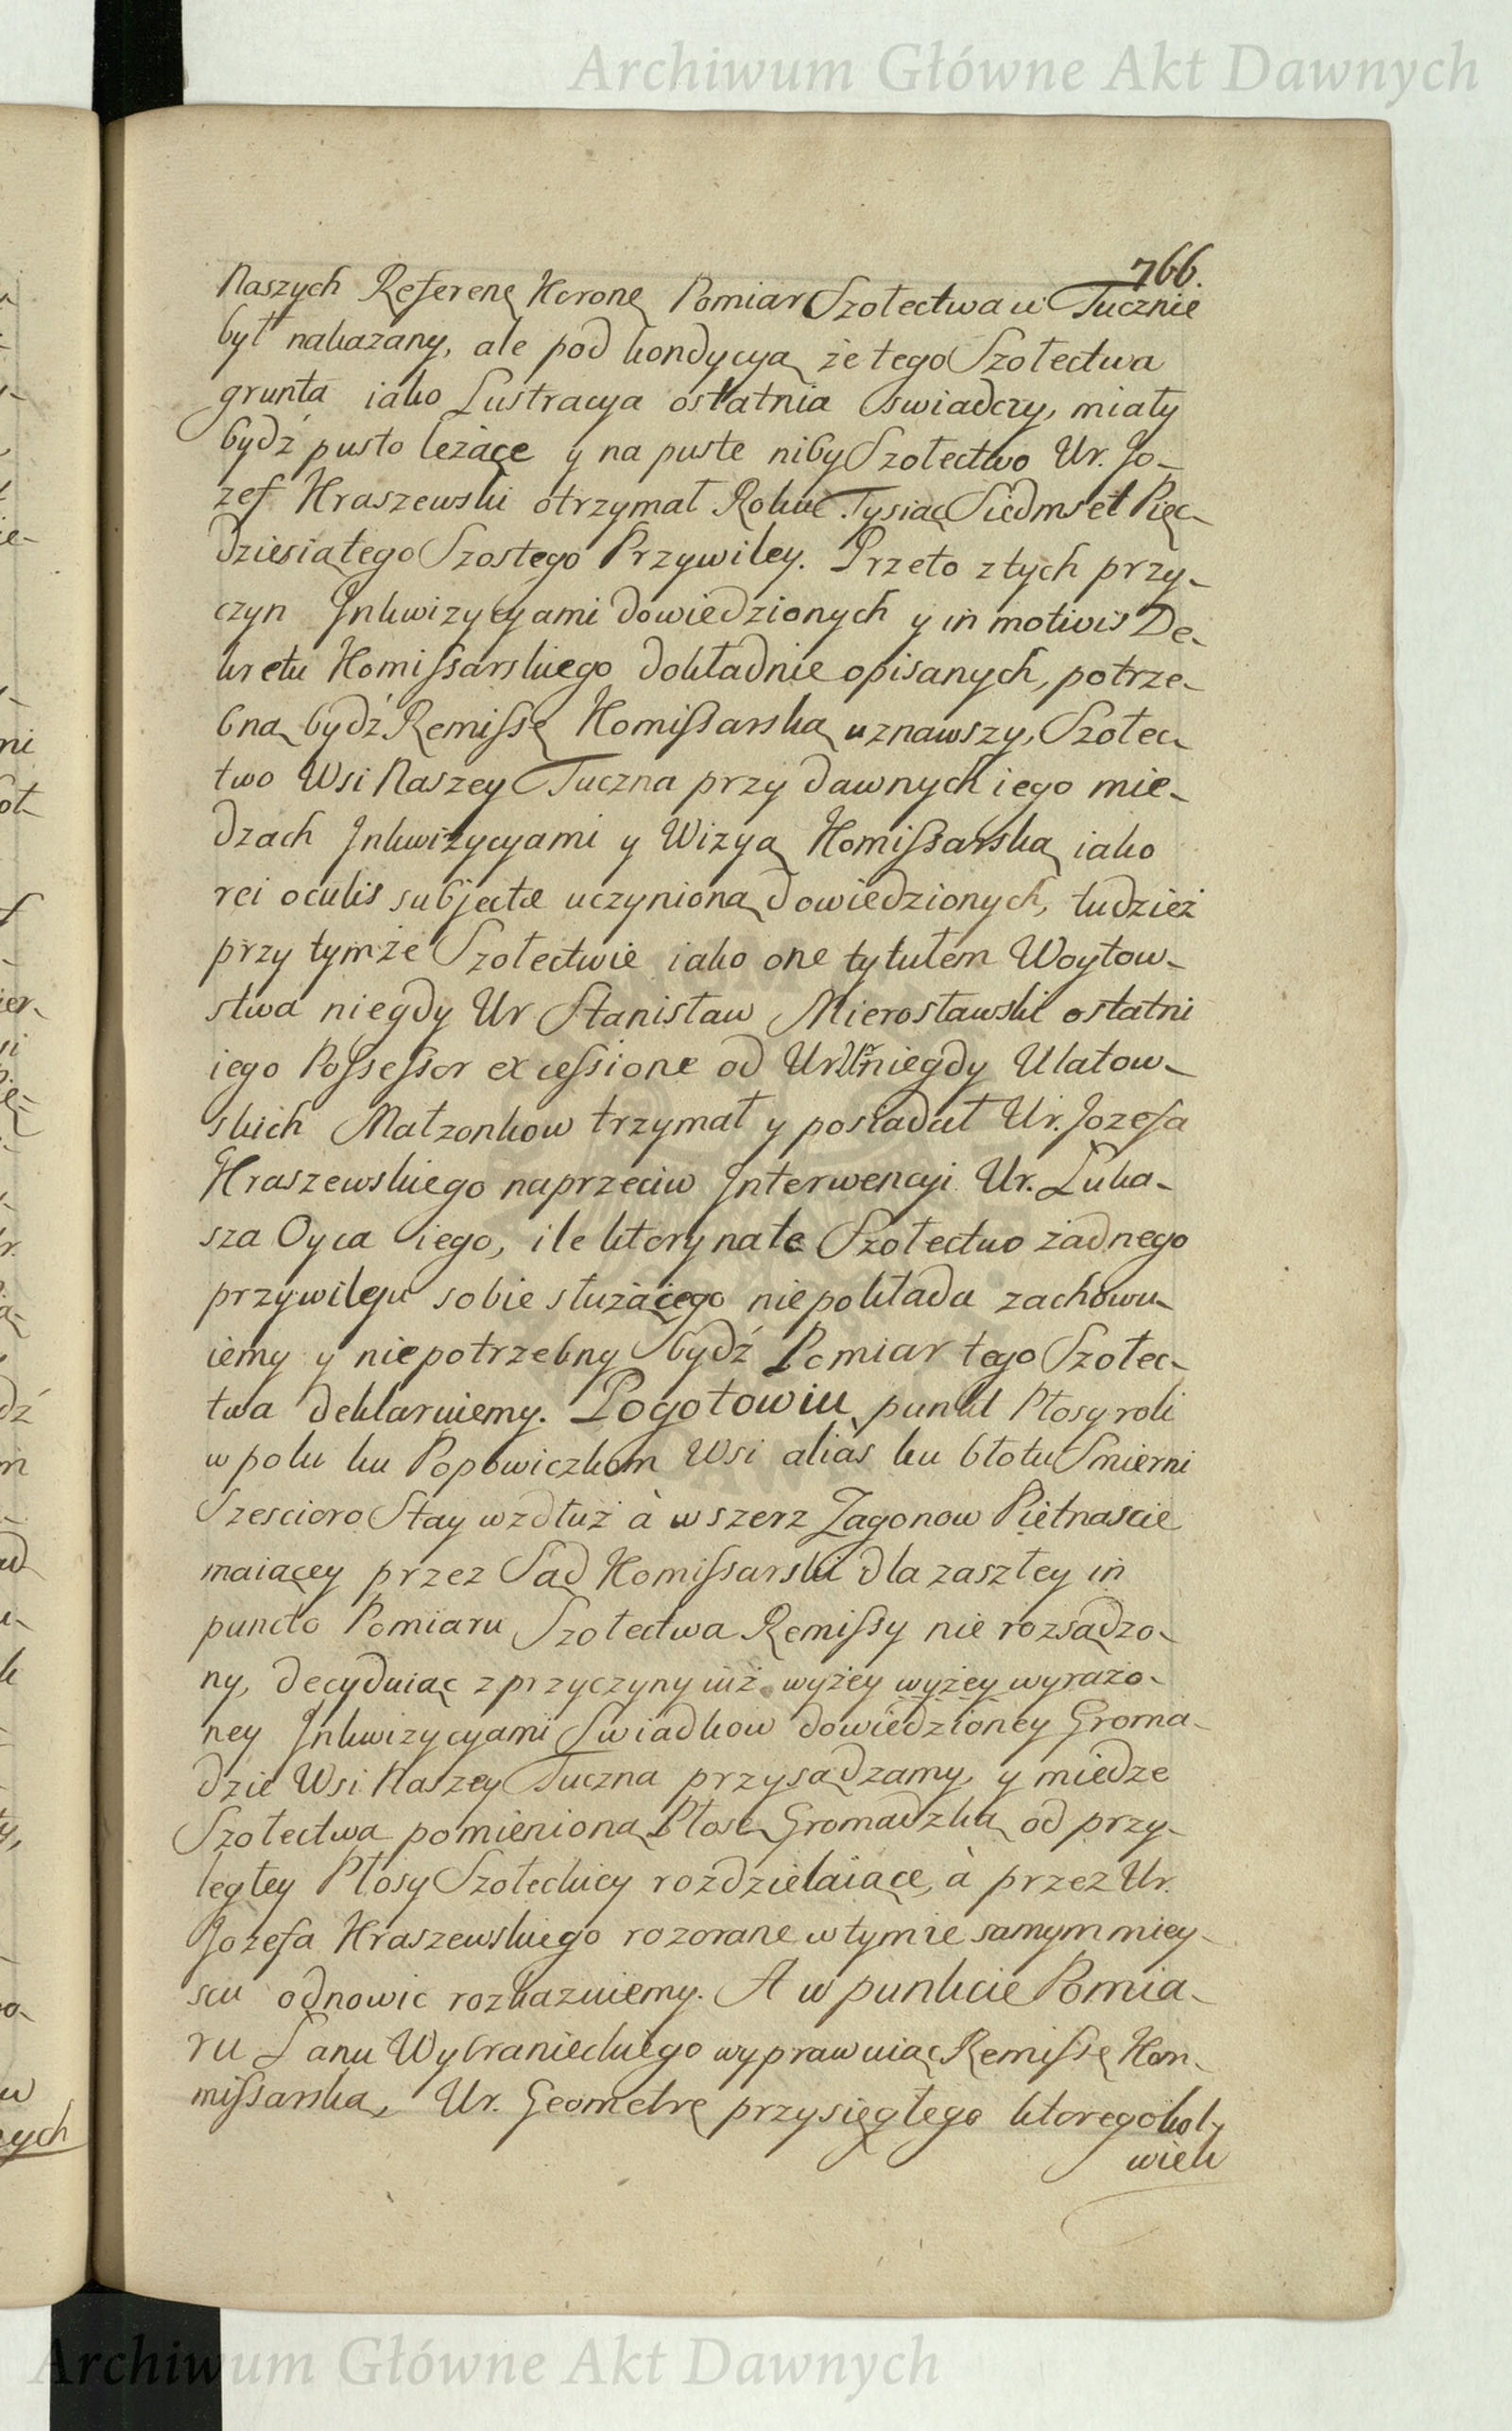 Archiwum Główne Akt Dawnych
766.
Naszych Referenę Koronę Pomiar Szołectwa w Tucznie
był nakazany, ale pod kondycyą że tego Szołectwa
grunta iako Lustracya ostatnia swiadczy, miały
bydź pusto leżące y na puste niby Szołectwo Ur. Jo-
zef Kraszewski otrzymał Roku Tysiąc Siedmset Pięc-
dziesiątego Szostego Przywiley. Przeto z tych przy-
czyn Inkwizycyami dowiedzionych y in motivis De-
kretu Komissarskiego dokładnie opisanych, potrze-
bną bydź Remissę Komissarską uznawszy, Szołec-
two Wsi Naszey Tuczna przy dawnych iego mie-
dzach Inkwizycyami y Wizyą Komissarską iako
rei oculis subjectæ uczynioną dowiedzionych, tudzież
przy tymże Szołectwie iako one tytułem Woytow-
stwa niegdy Ur Stanisław Mierosławski ostatni
iego Possessor ex cessione od Ur Ur niegdy Ulatow-
skich Małzonkow trzymał y posiadał Ur. Jozefa
Kraszewskiego naprzeciw Interwencyi Ur. Łuka-
sza Oyca iego, ile ktory na te Szołectwo żadnego
przywileju sobie służącego niepokłada zachowu-
iemy y niepotrzebny bydź Pomiar tego Szołec-
twa deklaruiemy. Pogotowiu punkt Płosy roli
w polu ku Popowiczkom Wsi alias ku błotu Smierni
Szescioro Stay wzdłuż à wszerz Zagonow Piętnascie
maiącey przez Sąd Komissarski dla zaszłey in
puncto Pomiaru Szołectwa Remissy nie rozsądzo-
ny, decyduiąc z przyczyny iuż wyżey wyżey wyrażo-
ney Inkwizycyami Swiadkow dowiedzioney Groma-
dzie Wsi Naszey Tuczna przysądzamy, y miedze
Szołectwa pomienioną Płosę Gromadzką od przy-
ległey Płosy Szołeckiey rozdzielaiące, à przez Ur.
Jozefa Kraszewskiego rozorane w tymże samym miey-
scu odnowic rozkazuiemy. A w punkcie Pomia-
ru Łanu Wybranieckiego wyprawuiąc Remissę Kom-
missarską, Ur. Geometrę przysięgłego ktoregokol-
wiek
Archiwum Główne Akt Dawnych